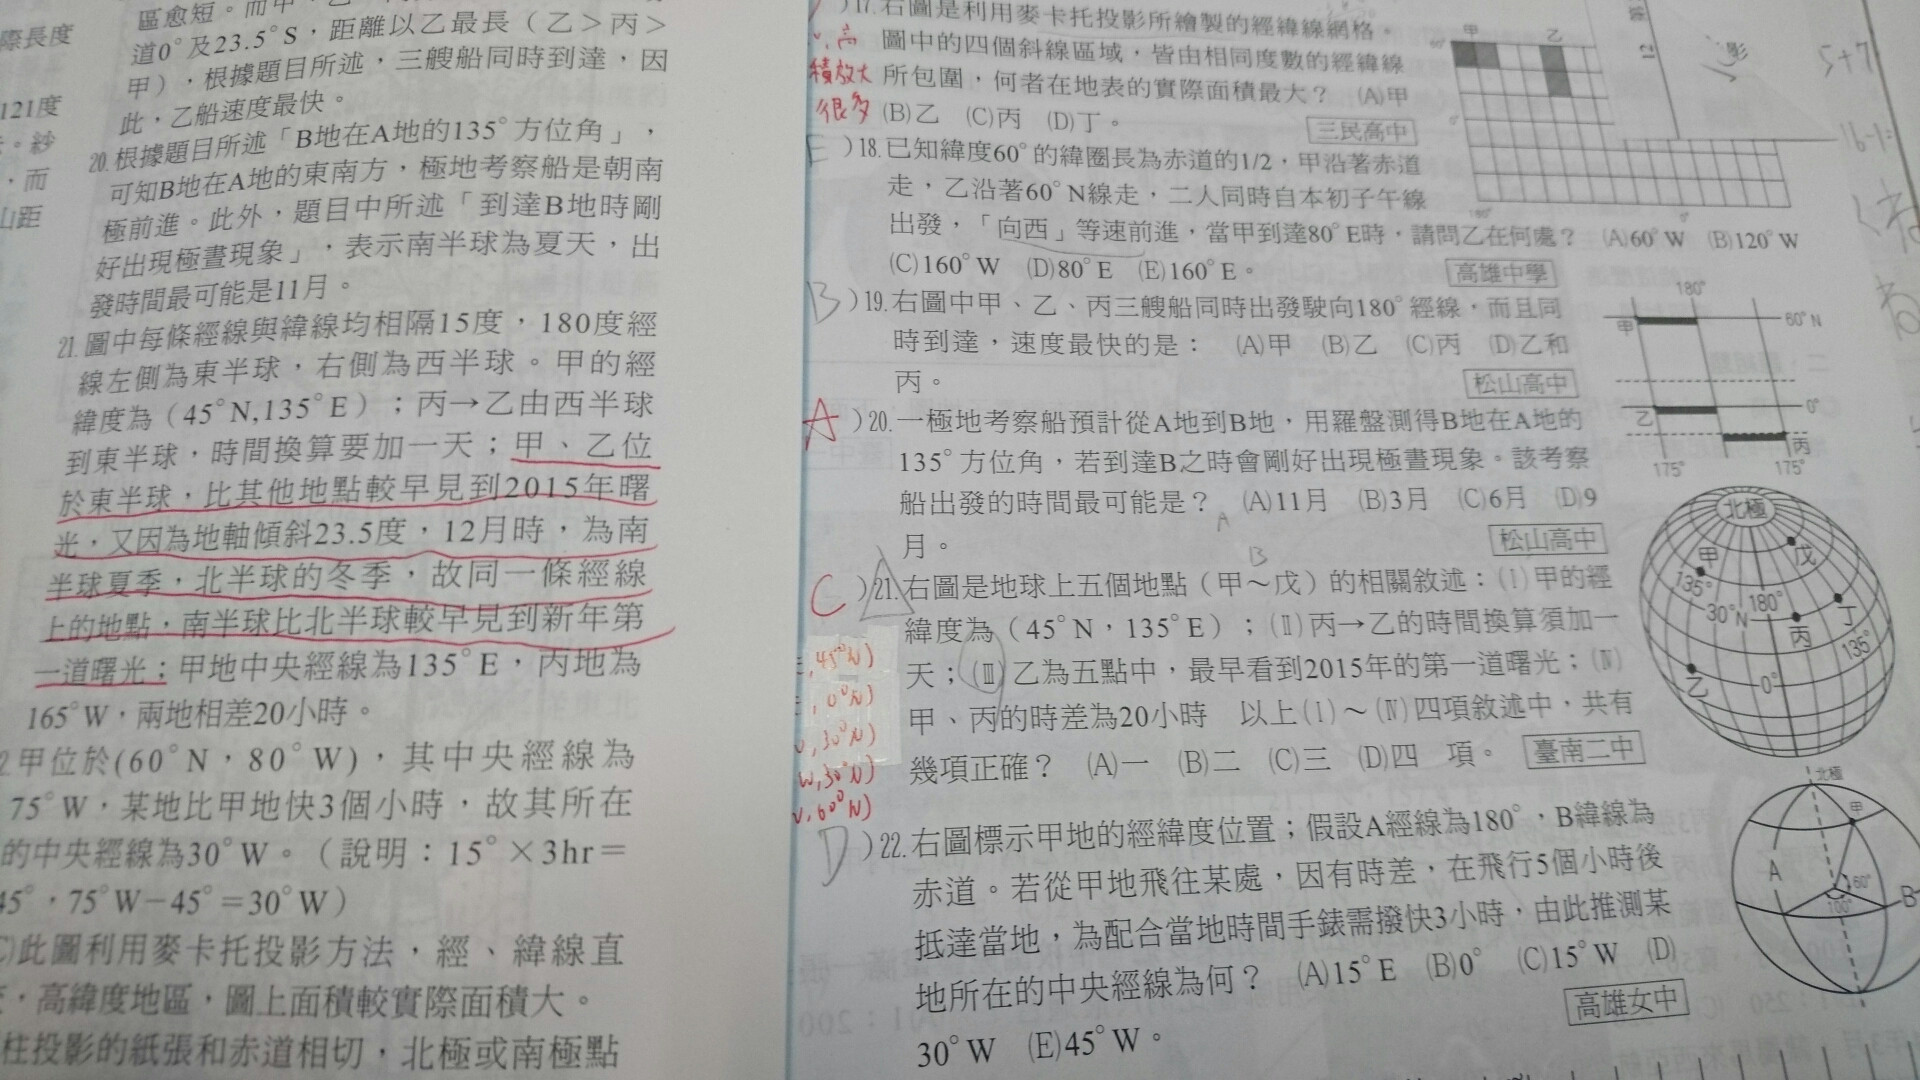 際長度
121度
。紗
，而
山距
區愈短。而甲
道0°及23.5°S，距離以乙最長（乙＞丙＞
甲），根據題目所述，三艘船同時到達，因
此，乙船速度最快。
20.根據題目所述「B地在A地的135°方位角」，
可知B地在A地的東南方，極地考察船是朝南
極前進。此外，題目中所述「到達B地時剛
好出現極晝現象」，表示南半球為夏天，出
發時間最可能是11月。
21.圖中每條經線與緯線均相隔15度，180度經
線左側為東半球，右側為西半球。甲的經
緯度為（45°N,135°E）；丙→乙由西半球
到東半球，時間換算要加一天；甲、乙位
於東半球，比其他地點較早見到2015年曙
光，又因為地軸傾斜23.5度，12月時，為南
半球夏季，北半球的冬季，故同一條經線
上的地點，南半球比北半球較早見到新年第
一道曙光；甲地中央經線為135°E，丙地為
165°W，兩地相差20小時。
2.甲位於(60°N，80°W)，其中央經線為
75°W，某地比甲地快3個小時，故其所在
的中央經線為30°W。（說明：15°×3hr＝
45°，75°W－45°＝30°W）
C)此圖利用麥卡托投影方法，經、緯線直
，高緯度地區，圖上面積較實際面積大。
柱投影的紙張和赤道相切，北極或南極點
)17.右圖是利用麥卡托投影所繪製的經緯線網格，
圖中的四個斜線區域，皆由相同度數的經緯線
所包圍，何者在地表的實際面積最大？ (A)甲
(B)乙 (C)丙 (D)丁。
三民高中
高
積放大
很多
甲 乙
0°
180°
0°
影
5+7
16-1=
E )18.已知緯度60°的緯圈長為赤道的1/2，甲沿著赤道
走，乙沿著60°N線走，二人同時自本初子午線
出發，「向西」等速前進，當甲到達80°E時，請問乙在何處？ (A)60°W (B)120°W
(C)160°W (D)80°E (E)160°E。
高雄中學
B )19.右圖中甲、乙、丙三艘船同時出發駛向180°經線，而且同
時到達，速度最快的是： (A)甲 (B)乙 (C)丙 (D)乙和
丙。
松山高中
180°
甲
60°N
乙
0°
丙
175°
175°
A )20.一極地考察船預計從A地到B地，用羅盤測得B地在A地的
135°方位角，若到達B之時會剛好出現極晝現象。該考察
船出發的時間最可能是？ (A)11月 (B)3月 (C)6月 (D)9
月。
松山高中
A
B
C )21.右圖是地球上五個地點（甲～戊）的相關敘述：(Ⅰ)甲的經
緯度為（45°N，135°E）；(Ⅱ)丙→乙的時間換算須加一
天；(Ⅲ)乙為五點中，最早看到2015年的第一道曙光；(Ⅳ)
甲、丙的時差為20小時 以上(Ⅰ)～(Ⅳ)四項敘述中，共有
幾項正確？ (A)一 (B)二 (C)三 (D)四 項。
臺南二中
, 45°N)
, 0°N)
, 30°N)
W, 30°N)
, 60°N)
北極
甲
戊
135°
丁
30°N
180°
丙
135°
乙
0°
D )22.右圖標示甲地的經緯度位置；假設A經線為180°，B緯線為
赤道。若從甲地飛往某處，因有時差，在飛行5個小時後
抵達當地，為配合當地時間手錶需撥快3小時，由此推測某
地所在的中央經線為何？ (A)15°E (B)0° (C)15°W (D)
30°W (E)45°W。
高雄女中
北極
甲
A
60°
100°
B